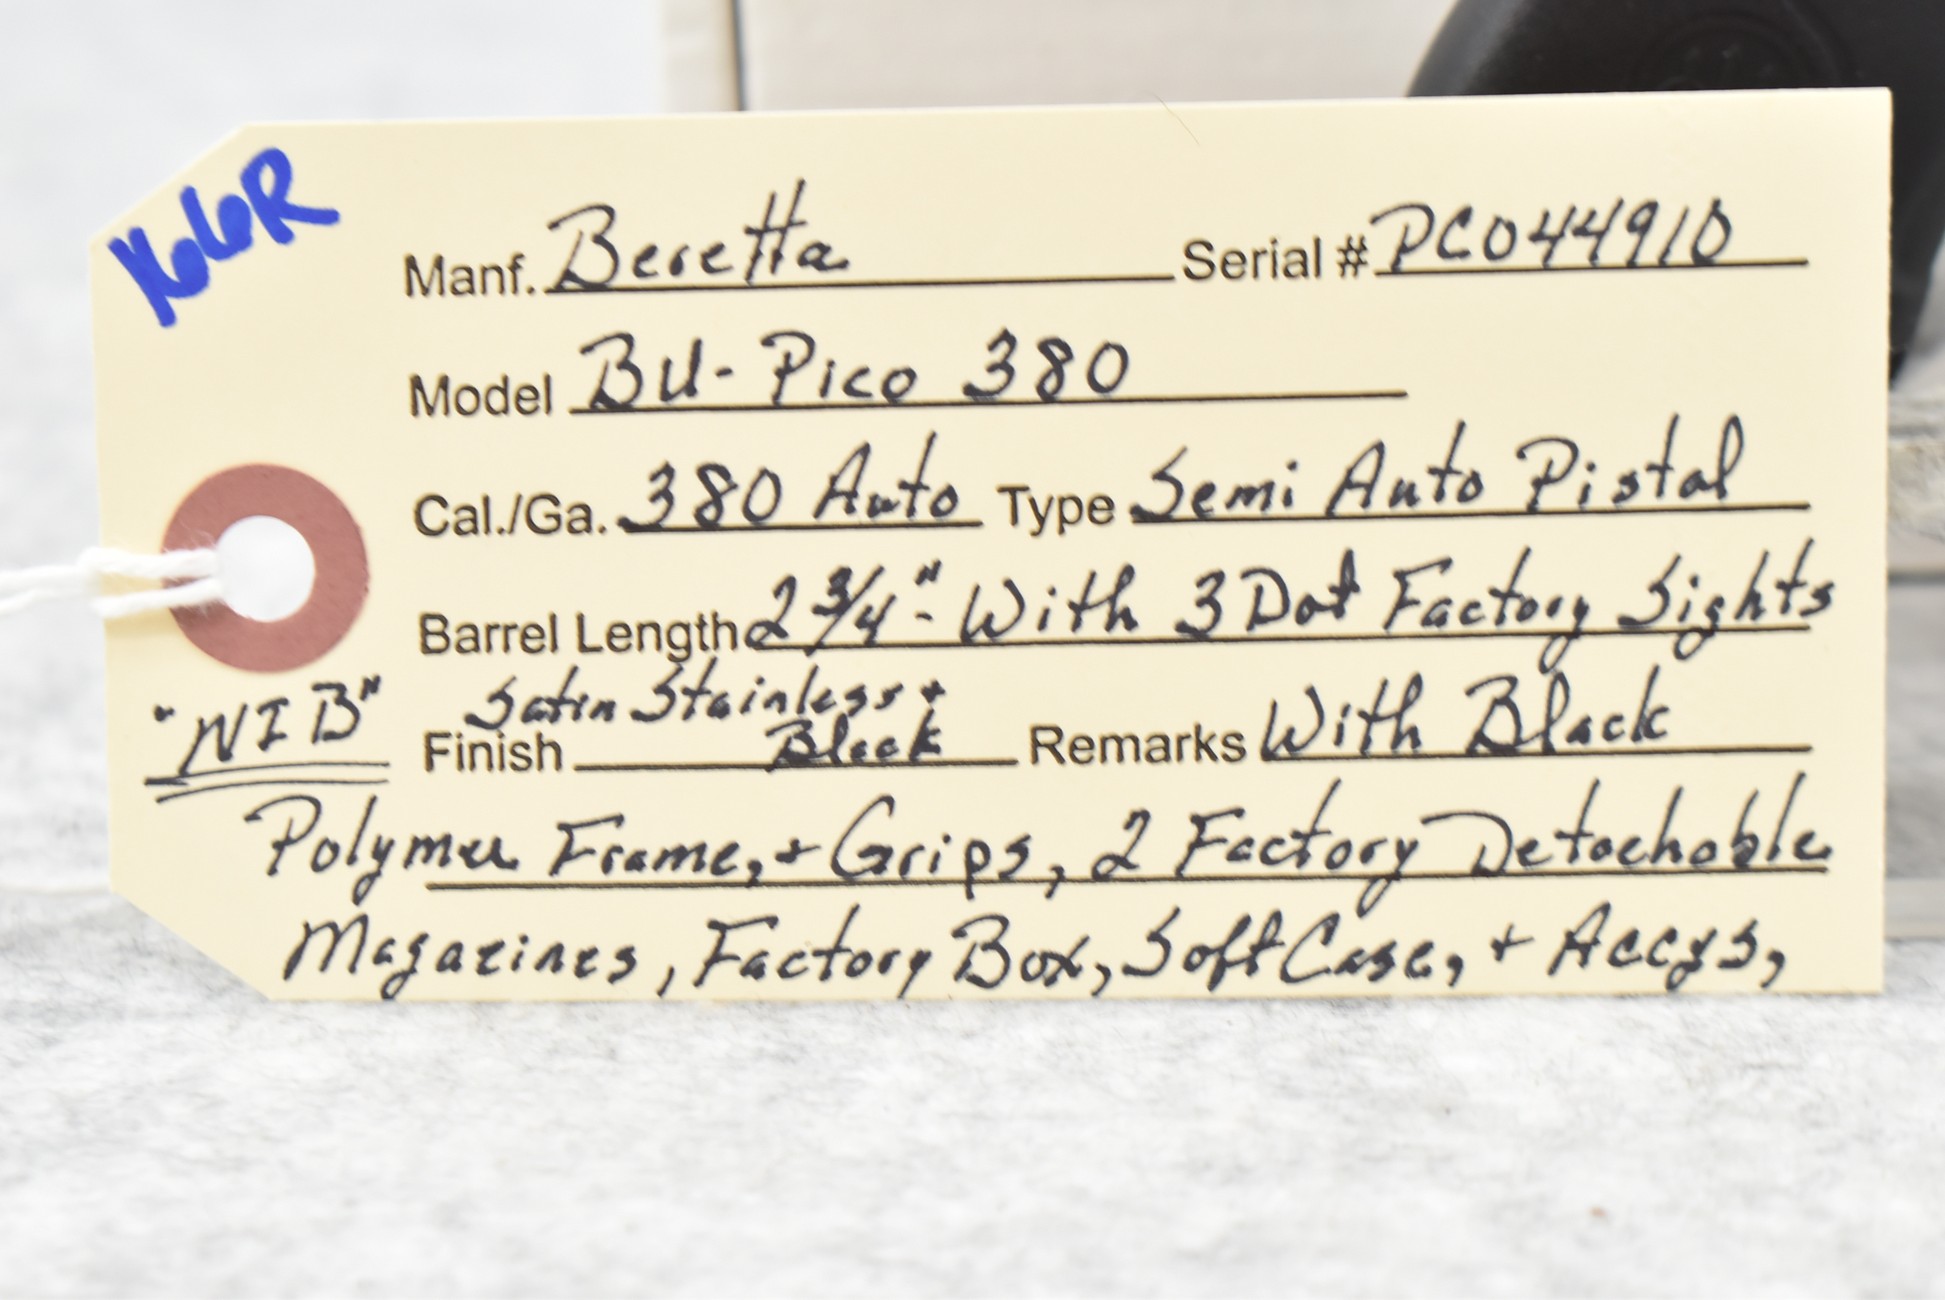 166R
Manf. Beretta Serial # PC044910
Model BU-Pico 380
Cal./Ga. 380 Auto Type Semi Auto Pistol
Barrel Length 2 3/4"- With 3 Dot Factory Sights
"NIB" Finish Satin Stainless + Black Remarks With Black
Polymer Frame, + Grips, 2 Factory Detachable
Magazines, Factory Box, Soft Case, + Accys,